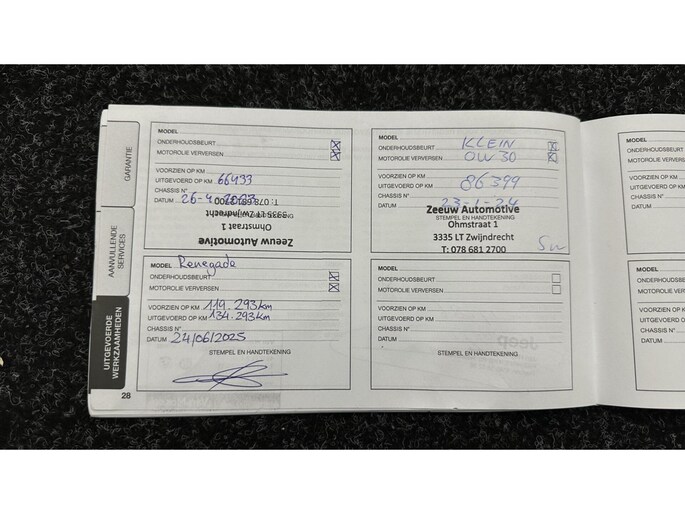 GARANTIE
AANVULLENDE
SERVICES
UITGEVOERDE
WERKZAAMHEDEN
MODEL
ONDERHOUDSBEURT
MOTOROLIE VERVERSEN
VOORZIEN OP KM
UITGEVOERD OP KM 66433
CHASSIS N°
DATUM 26-4-2023
STEMPEL EN HANDTEKENING
Zeeuw Automotive
Ohmstraat 1
3335 LT Zwijndrecht
T: 078 681 2700
MODEL
ONDERHOUDSBEURT KLEIN
MOTOROLIE VERVERSEN OW30
VOORZIEN OP KM
UITGEVOERD OP KM 86399
CHASSIS N°
DATUM 23-1-24
STEMPEL EN HANDTEKENING
Zeeuw Automotive
Ohmstraat 1
3335 LT Zwijndrecht
T: 078 681 2700
MODEL Renegade
ONDERHOUDSBEURT
MOTOROLIE VERVERSEN
VOORZIEN OP KM 119.293km
UITGEVOERD OP KM 134.293km
CHASSIS N°
DATUM 24/06/2025
STEMPEL EN HANDTEKENING
ONDERHOUDSBEURT
MOTOROLIE VERVERSEN
VOORZIEN OP KM
UITGEVOERD OP KM
CHASSIS N°
DATUM
STEMPEL EN HANDTEKENING
28
MODEL
ONDERHOUDSB
MOTOROLIE VE
VOORZIEN OP
UITGEVOERD
CHASSIS N°
DATUM
MODEL
ONDERHOUD
MOTOROLIE
VOORZIEN O
UITGEVOERD
CHASSIS N°
DATUM